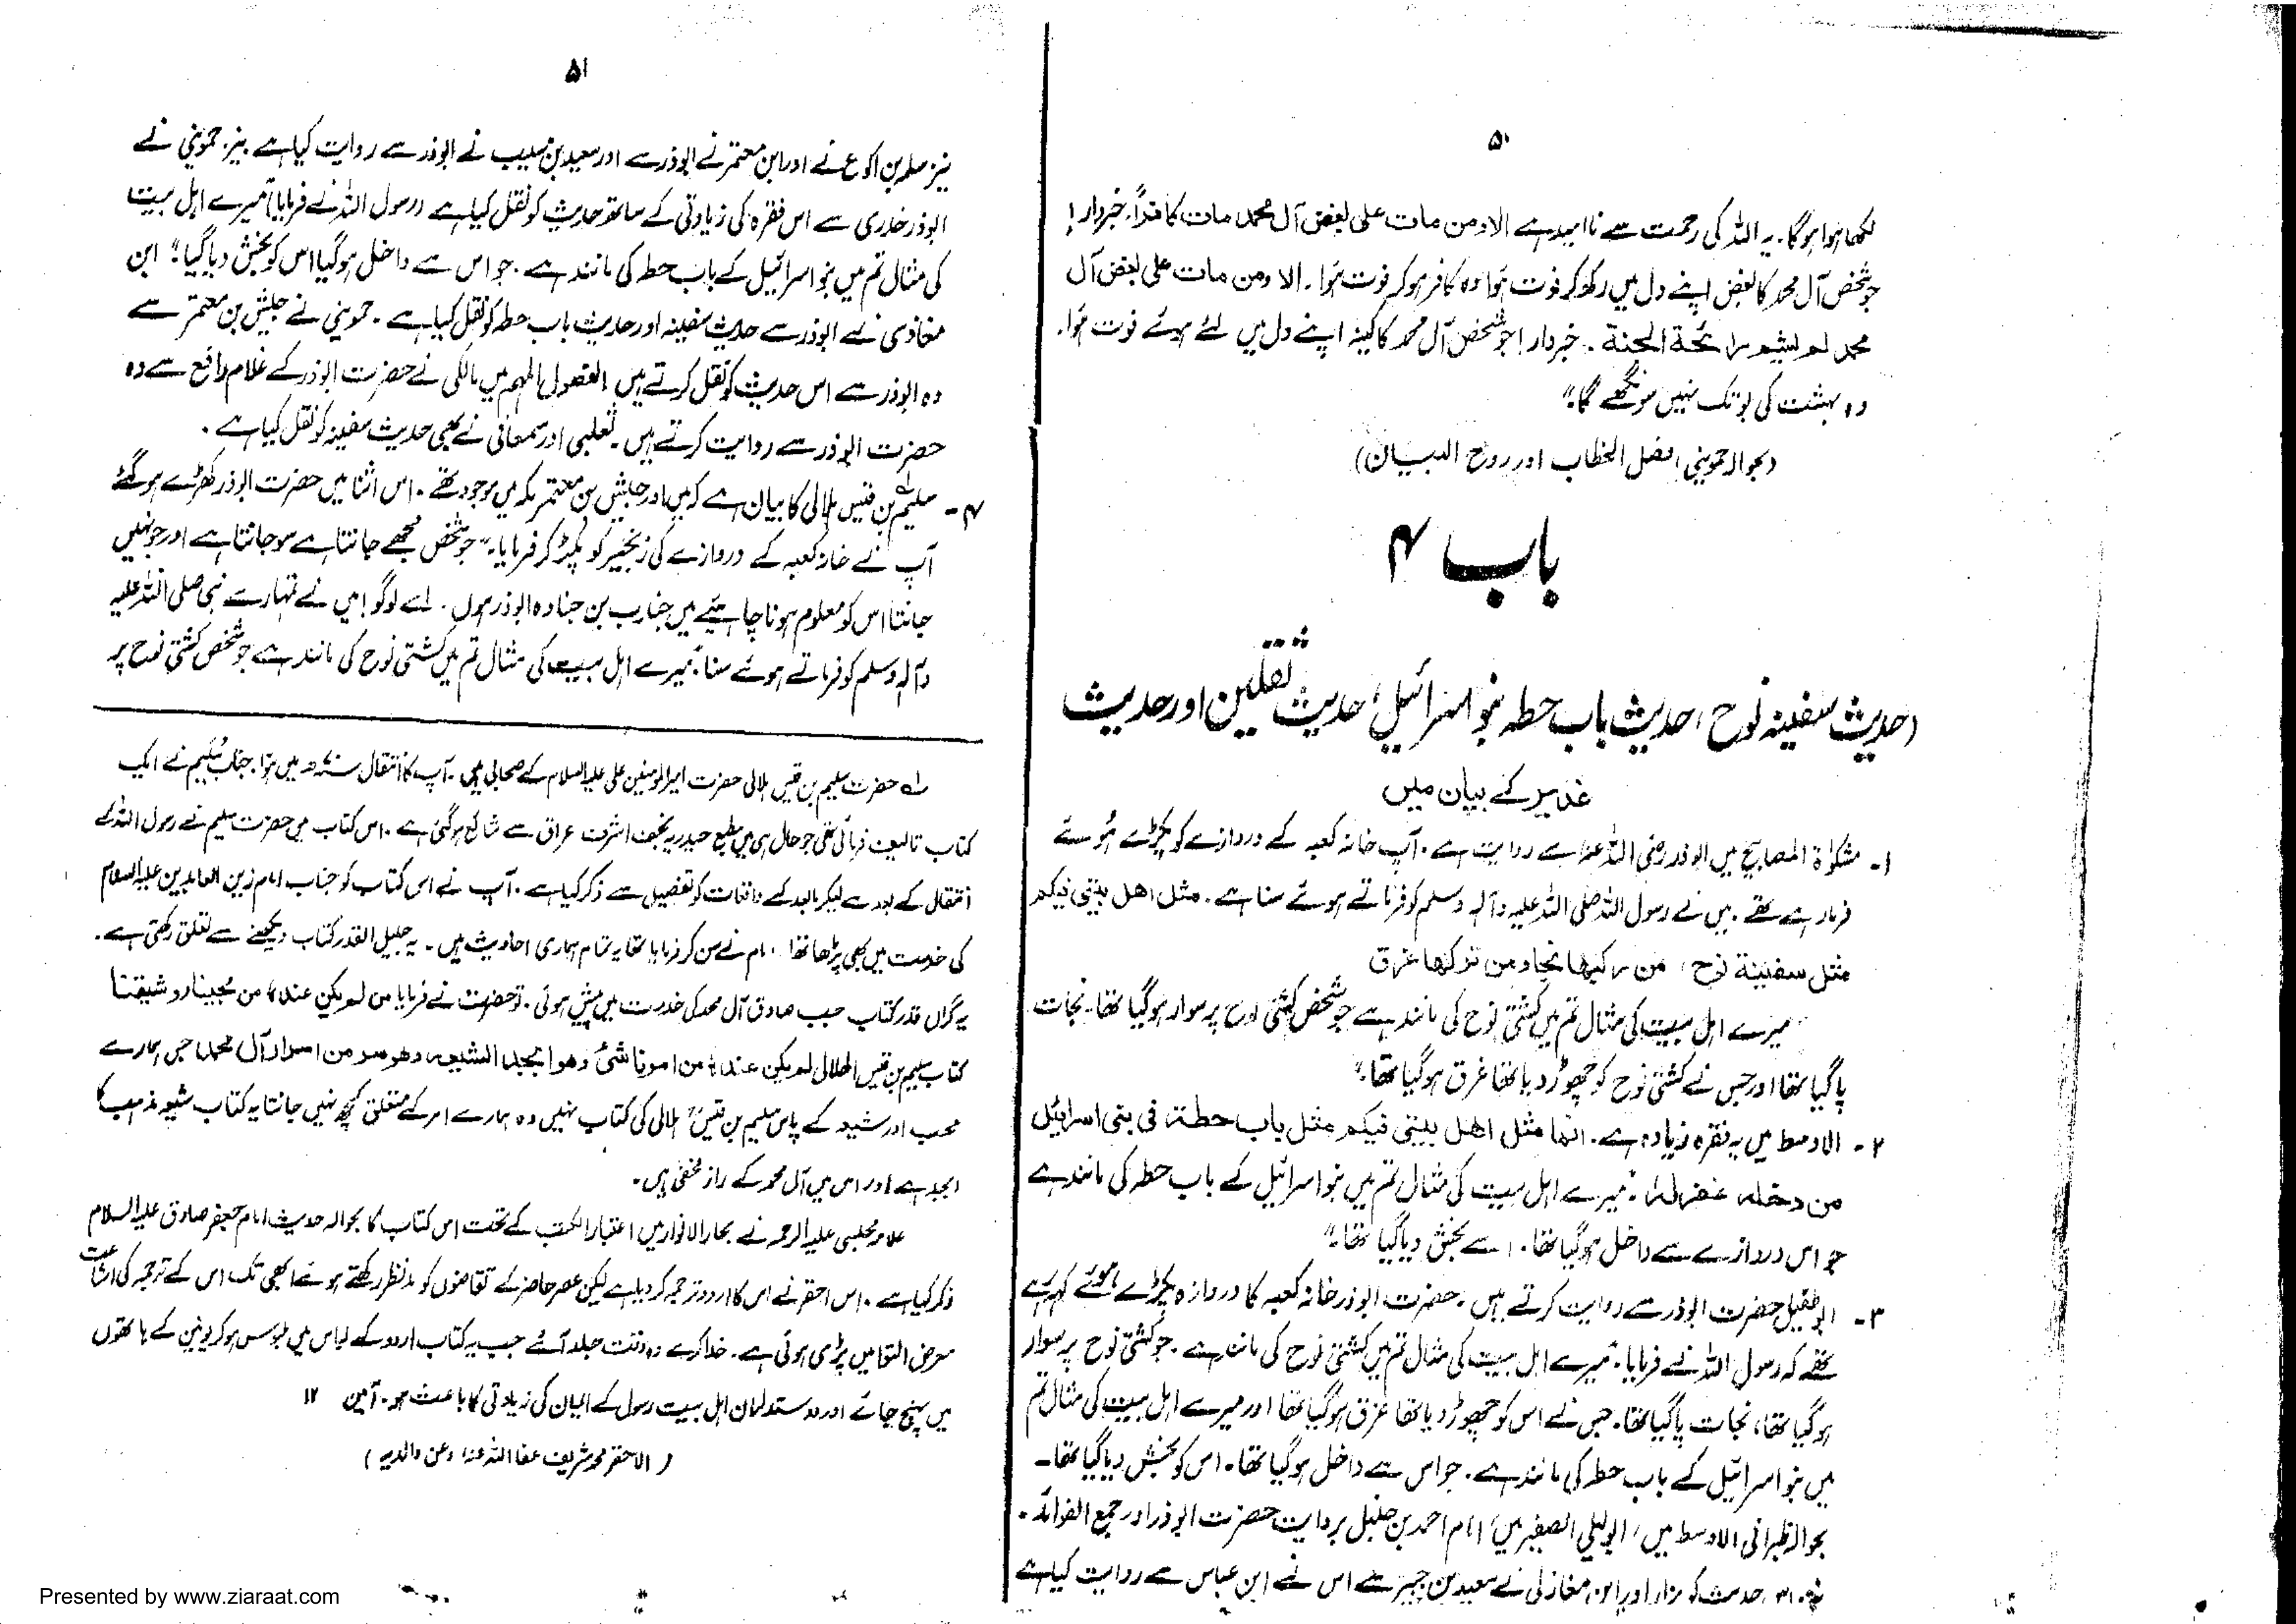 ۵۰
لکھا ہوا ہوگا۔ یہ اللہ کی رحمت سے ناامید ہے الا ومن مات علی بغض آل محمد مات کافراً۔ خبردار!
جو شخص آل محمد کا بغض اپنے دل میں رکھ کر فوت ہوا وہ کافر ہو کر فوت ہوا۔ الا ومن مات علی بغض آل
محمد لم یشم رائحة الجنة۔ خبردار! جو شخص آل محمد کا کینہ اپنے دل میں لئے ہوئے فوت ہوا۔
وہ بہشت کی بو تک نہیں سونگھے گا۔"
(بحوالہ حموینی، فصل الخطاب اور روح البیان)
باب ۴
(حدیث سفینہ نوح، حدیث باب حطہ بنو اسرائیل، حدیث ثقلین اور حدیث
غدیر کے بیان میں
۱۔ مشکوٰة المصابیح میں ابوذر رضی اللہ عنہ سے روایت ہے۔ آپ خانہ کعبہ کے دروازے کو پکڑے ہوئے
فرما رہے تھے۔ میں نے رسول اللہ صلی اللہ علیہ وآلہ وسلم کو فرماتے ہوئے سنا ہے۔ مثل اهل بیتی فیکم
مثل سفینة نوح، من رکبها نجا ومن ترکها غرق
میرے اہل بیت کی مثال تم میں کشتی نوح کی مانند ہے جو شخص کشتی نوح پر سوار ہو گیا تھا۔ نجات
پا گیا تھا اور جس نے کشتی نوح کو چھوڑ دیا تھا غرق ہو گیا تھا۔"
۲۔ الاوسط میں یہ فقرہ زیادہ ہے۔ انما مثل اهل بیتی فیکم مثل باب حطة فی بنی اسرائیل
من دخله غفر له۔ "میرے اہل بیت کی مثال تم میں بنو اسرائیل کے باب حطہ کی مانند ہے
جو اس دروازے سے داخل ہو گیا تھا۔ اسے بخش دیا گیا تھا۔"
۳۔ ابو طفیل حضرت ابوذر سے روایت کرتے ہیں۔ حضرت ابوذر خانہ کعبہ کا دروازہ پکڑے ہوئے کہہ رہے
تھے کہ رسول اللہ نے فرمایا۔ "میرے اہل بیت کی مثال تم میں کشتی نوح کی مانند ہے۔ جو کشتی نوح پر سوار
ہو گیا تھا، نجات پا گیا تھا۔ جس نے اس کو چھوڑ دیا تھا غرق ہو گیا تھا اور میرے اہل بیت کی مثال تم
میں بنو اسرائیل کے باب حطہ کی مانند ہے۔ جو اس سے داخل ہو گیا تھا۔ اس کو بخش دیا گیا تھا۔
بحوالہ طبرانی الاوسط میں، ابو لیلی الصغیر میں، امام احمد بن حنبل بروایت حضرت ابوذر اور جمع الفوائد۔
حدیث کو بزار اور ابن مغازلی نے سعید بن جبیر سے اس نے ابن عباس سے روایت کیا ہے
۵۱
نیز سلمہ بن اکوع نے اور ابن معتمر نے ابوذر سے اور سعید بن مسیب نے ابوذر سے روایت کیا ہے نیز حموینی نے
ابوذر خدری سے اس فقرہ کی زیادتی کے ساتھ حدیث کو نقل کیا ہے رسول اللہ نے فرمایا "میرے اہل بیت
کی مثال تم میں بنو اسرائیل کے باب حطہ کی مانند ہے۔ جو اس سے داخل ہو گیا اس کو بخش دیا گیا" ابن
مغازی نے ابوذر سے حدیث سفینہ اور حدیث باب حطہ کو نقل کیا ہے۔ حموینی نے حبیش بن معتمر سے
وہ ابوذر سے اس حدیث کو نقل کرتے ہیں الفصول المہمہ میں مالکی نے حضرت ابوذر کے غلام رافع سے وہ
حضرت ابوذر سے روایت کرتے ہیں۔ ثعلبی اور سمعانی نے بھی حدیث سفینہ کو نقل کیا ہے۔
۴۔ سلیم بن قیس ہلالی کا بیان ہے کہ میں اور حبیش بن معتمر مکہ میں موجود تھے۔ اس اثنا میں حضرت ابوذر کھڑے ہو گئے
آپ نے خانہ کعبہ کے دروازے کی زنجیر کو پکڑ کر فرمایا۔ "جو شخص مجھے جانتا ہے سو جانتا ہے اور جو نہیں
جانتا اس کو معلوم ہونا چاہیئے میں جندب بن جنادہ ابوذر ہوں۔ اے لوگو! میں نے تمہارے نبی صلی اللہ علیہ
وآلہ وسلم کو فرماتے ہوئے سنا "میرے اہل بیت کی مثال تم میں کشتی نوح کی مانند ہے جو شخص کشتی نوح پر
لہ حضرت سلیم بن قیس ہلالی حضرت امیر المومنین علی علیہ السلام کے صحابی ہیں۔ آپ کا انتقال میں ہوا۔ جناب سلیم نے ایک
کتاب تالیف فرمائی تھی جو حال ہی میں مطبع حیدریہ نجف اشرف عراق سے شائع ہو گئی ہے۔ اس کتاب میں حضرت سلیم نے رسول اللہ کے
انتقال کے بعد سے لیکر مابعد کے واقعات کو تفصیل سے ذکر کیا ہے۔ آپ نے اس کتاب کو جناب امام زین العابدین علیہ السلام
کی خدمت میں بھی پڑھا تھا۔ امام نے سن کر فرمایا تھا یہ تمام ہماری احادیث ہیں۔ یہ جلیل القدر کتاب دیکھنے سے تعلق رکھتی ہے۔
یہ گراں قدر کتاب جب صادق آل محمد کی خدمت میں پیش ہوئی۔ تو حضرت نے فرمایا من لم یکن عنده من محبینا و شیعتنا
کتاب سلیم بن قیس الهلالی لم یکن عنده من امرنا شئ وهو ابجد الشیعه وهو سر من اسرار آل محمد جس ہمارے
محب اور شیعہ کے پاس سلیم بن قیس ہلالی کی کتاب نہیں وہ ہمارے امر کے متعلق کچھ نہیں جانتا یہ کتاب شیعہ مذہب کا
ابجد ہے اور اس میں آل محمد کے راز مخفی ہیں۔
علامہ مجلسی علیہ الرحمہ نے بحار الانوار میں اعتبار الکتب کے تحت اس کتاب کا بحوالہ حدیث امام جعفر صادق علیہ السلام
ذکر کیا ہے۔ اس احقر نے اس کا اردو ترجمہ کر دیا ہے لیکن عصر حاضر کے تقاضوں کو مدنظر رکھتے ہوئے ابھی تک اس کے ترجمہ کی اشاعت
معرض التوا میں پڑی ہوئی ہے۔ خدا کرے وہ وقت جلد آئے جب یہ کتاب اردو کے لباس میں ملبوس ہو کر مومنین کے ہاتھوں
میں پہنچ جائے اور دوستداران اہل بیت رسول کے ایمان کی زیادتی کا باعث ہو۔ آمین ۱۲
(الاحقر محمد شریف عفا اللہ عنہ وعن والدیہ)
Presented by www.ziaraat.com